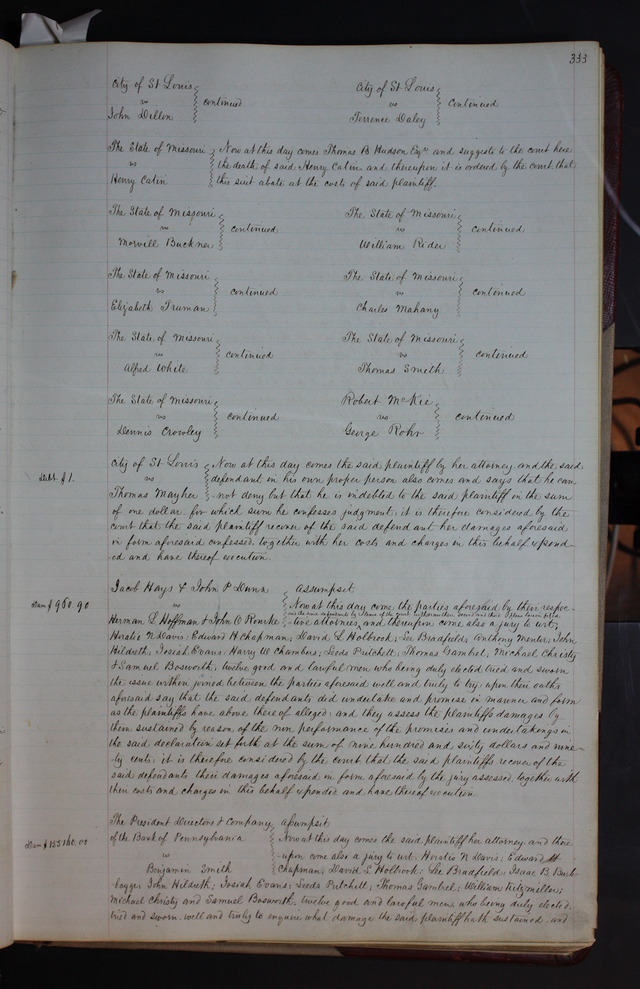 333
City of St Louis
vs
John Dillon
continued
City of St Louis
vs
Terrence Daley
continued
The State of Missouri
vs
Henry Catin
Now at this day comes Thomas B Hudson Esqre and suggests to the court here
the death of said Henry Catin and thereupon it is ordered by the court that
this suit abate at the costs of said plaintiff.
The State of Missouri
vs
Morvill Buckner
continued
The State of Missouri
vs
William Rider
continued
The State of Missouri
vs
Elizabeth Truman
continued
The State of Missouri
vs
Charles Mahany
continued
The State of Missouri
vs
Alfred White
continued
The State of Missouri
vs
Thomas Smith
continued
The State of Missouri
vs
Dennis Crowley
continued
Robert McKie
vs
George Rohr
continued
debt $1.
City of St Louis
vs
Thomas Mayher
Now at this day comes the said plaintiff by her attorney and the said
defendant in his own proper person also comes and says that he can
not deny but that he is indebted to the said plaintiff in the sum
of one dollar for which sum he confesses judgment; it is therefore considered by the
court that the said plaintiff recover of the said defendant her damages aforesaid
in form aforesaid confessed together with her costs and charges in this behalf expend
ed and have thereof execution.
Dam $960.90
Jacob Hays & John P Dunn
vs
Herman L Hoffman & John O Rourke
Assumpsit
Now at this day come the parties aforesaid by their respec
tive attornies and thereupon come also a jury to wit;
Horatio N Davis; Edward H Chapman; David L Holbrook; Lee Bradfield; Anthony Menter; John
Hildreth; Josiah Evans; Harry W Chambers; Leeds Pulchett; Thomas Gambel; Michael Christy
& Samuel Bosworth, twelve good and lawful men who being duly elected tried and sworn
the issue within joined between the parties aforesaid well and truly to try, upon their oaths
aforesaid say that the said defendants did undertake and promise in manner and form
as the plaintiffs have above thereof alleged; and they assess the plaintiffs damages by
them sustained by reason of the non performance of the promises and undertakings in
the said declaration set forth at the sum of nine hundred and sixty dollars and nine
ty cents; it is therefore considered by the court that the said plaintiffs recover of the
said defendants their damages aforesaid in form aforesaid by the jury assessed, together with
their costs and charges in this behalf expended and have thereof execution
The President Directors & Company
of the Bank of Pennsylvania
vs
Benjamin Smith
assumpsit
Now at this day comes the said plaintiff her attorney and there
upon come also a jury to wit: Horatio N Davis; Edward H
Chapman; David L Holbrook; Lee Bradfield; Isaac B Burb
bayge; John Hildreth; Josiah Evans; Leeds Pulchett; Thomas Gambel; William
Michael Christy and Samuel Bosworth, twelve good and lawful men who being duly elected
tried and sworn well and truly to enquire what damage the said plaintiff hath sustained and